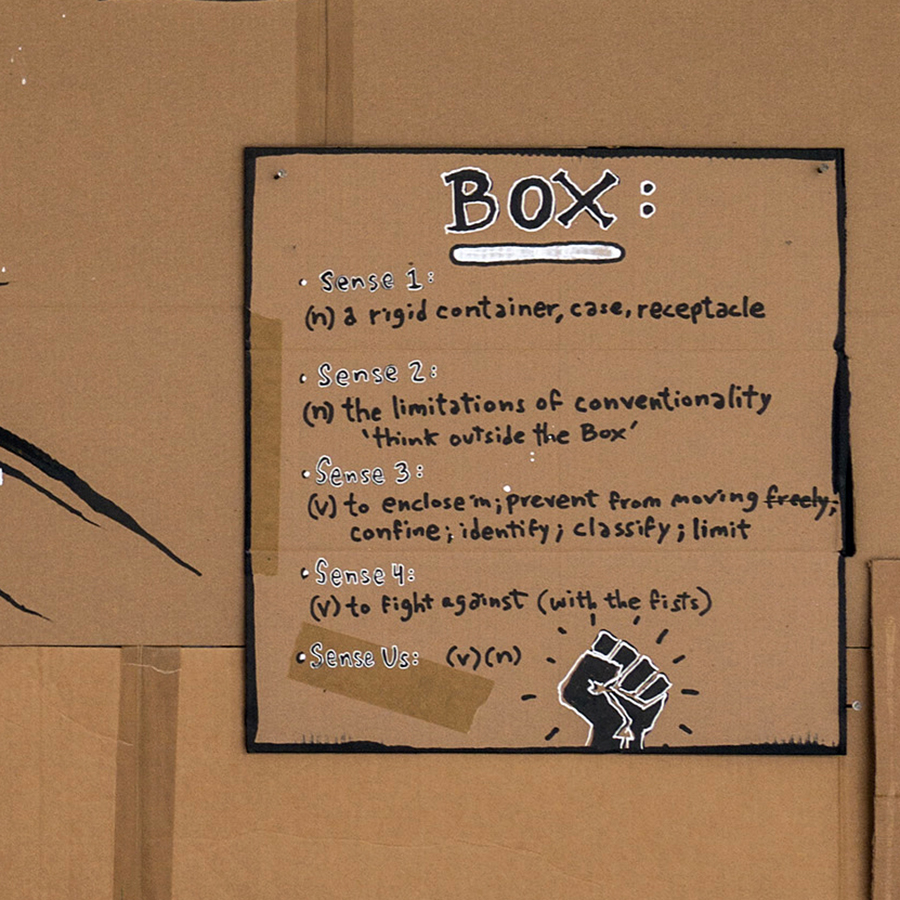 BOX:
• Sense 1:
(n) a rigid container, case, receptacle
• Sense 2:
(n) the limitations of conventionality
'think outside the Box'
• Sense 3:
(v) to enclose in; prevent from moving freely;
confine; identify; classify; limit
• Sense 4:
(v) to fight against (with the fists)
• Sense Us: (v)(n)